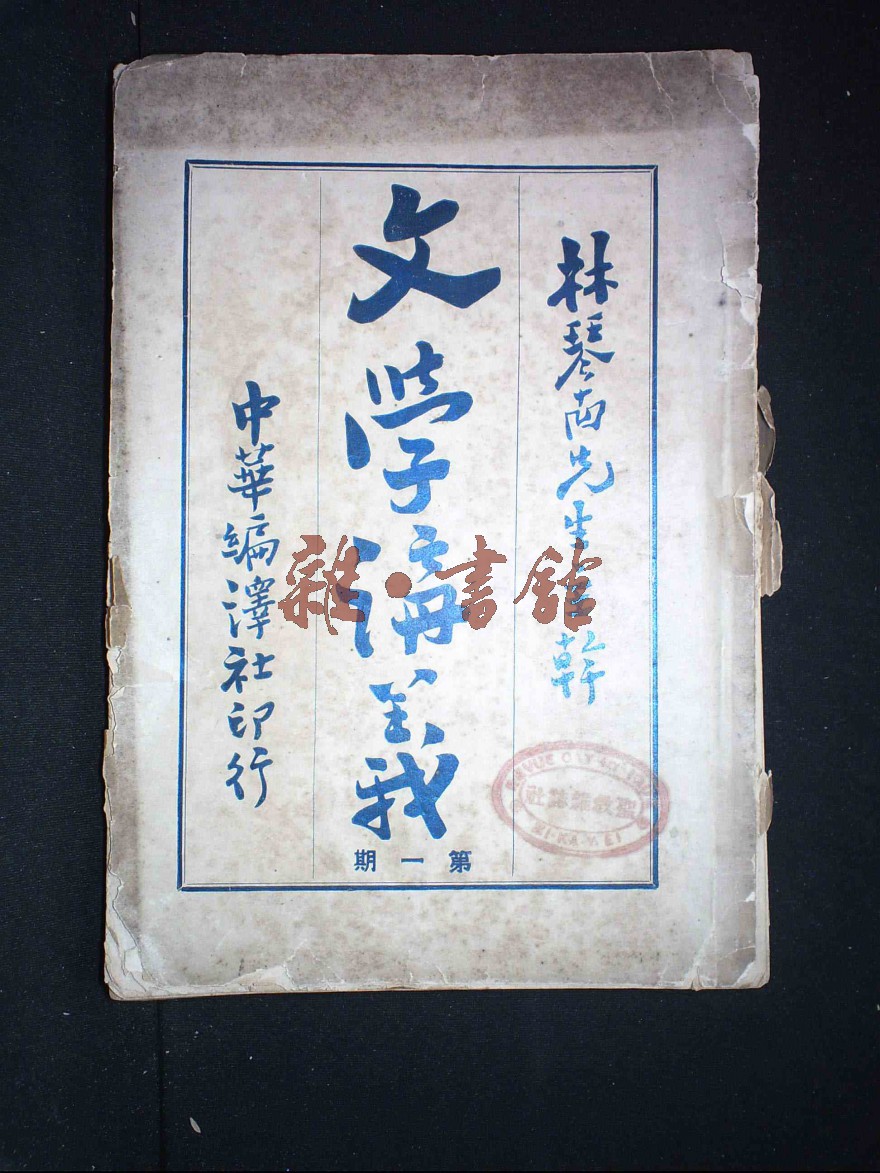 林琴南先生主幹
文學講義
第一期
中華編譯社印行
雜·書館
聖教雜誌社
ZI-KA-WEI